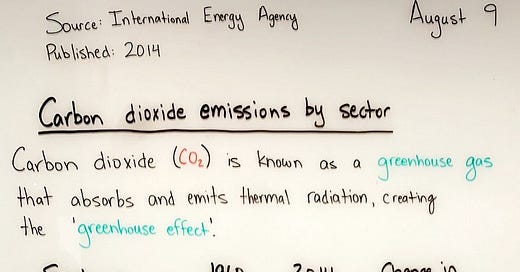 Source: International Energy Agency
August 9
Published: 2014
Carbon dioxide emissions by sector
Carbon dioxide (CO₂) is known as a greenhouse gas
that absorbs and emits thermal radiation, creating
the 'greenhouse effect'.
Change in